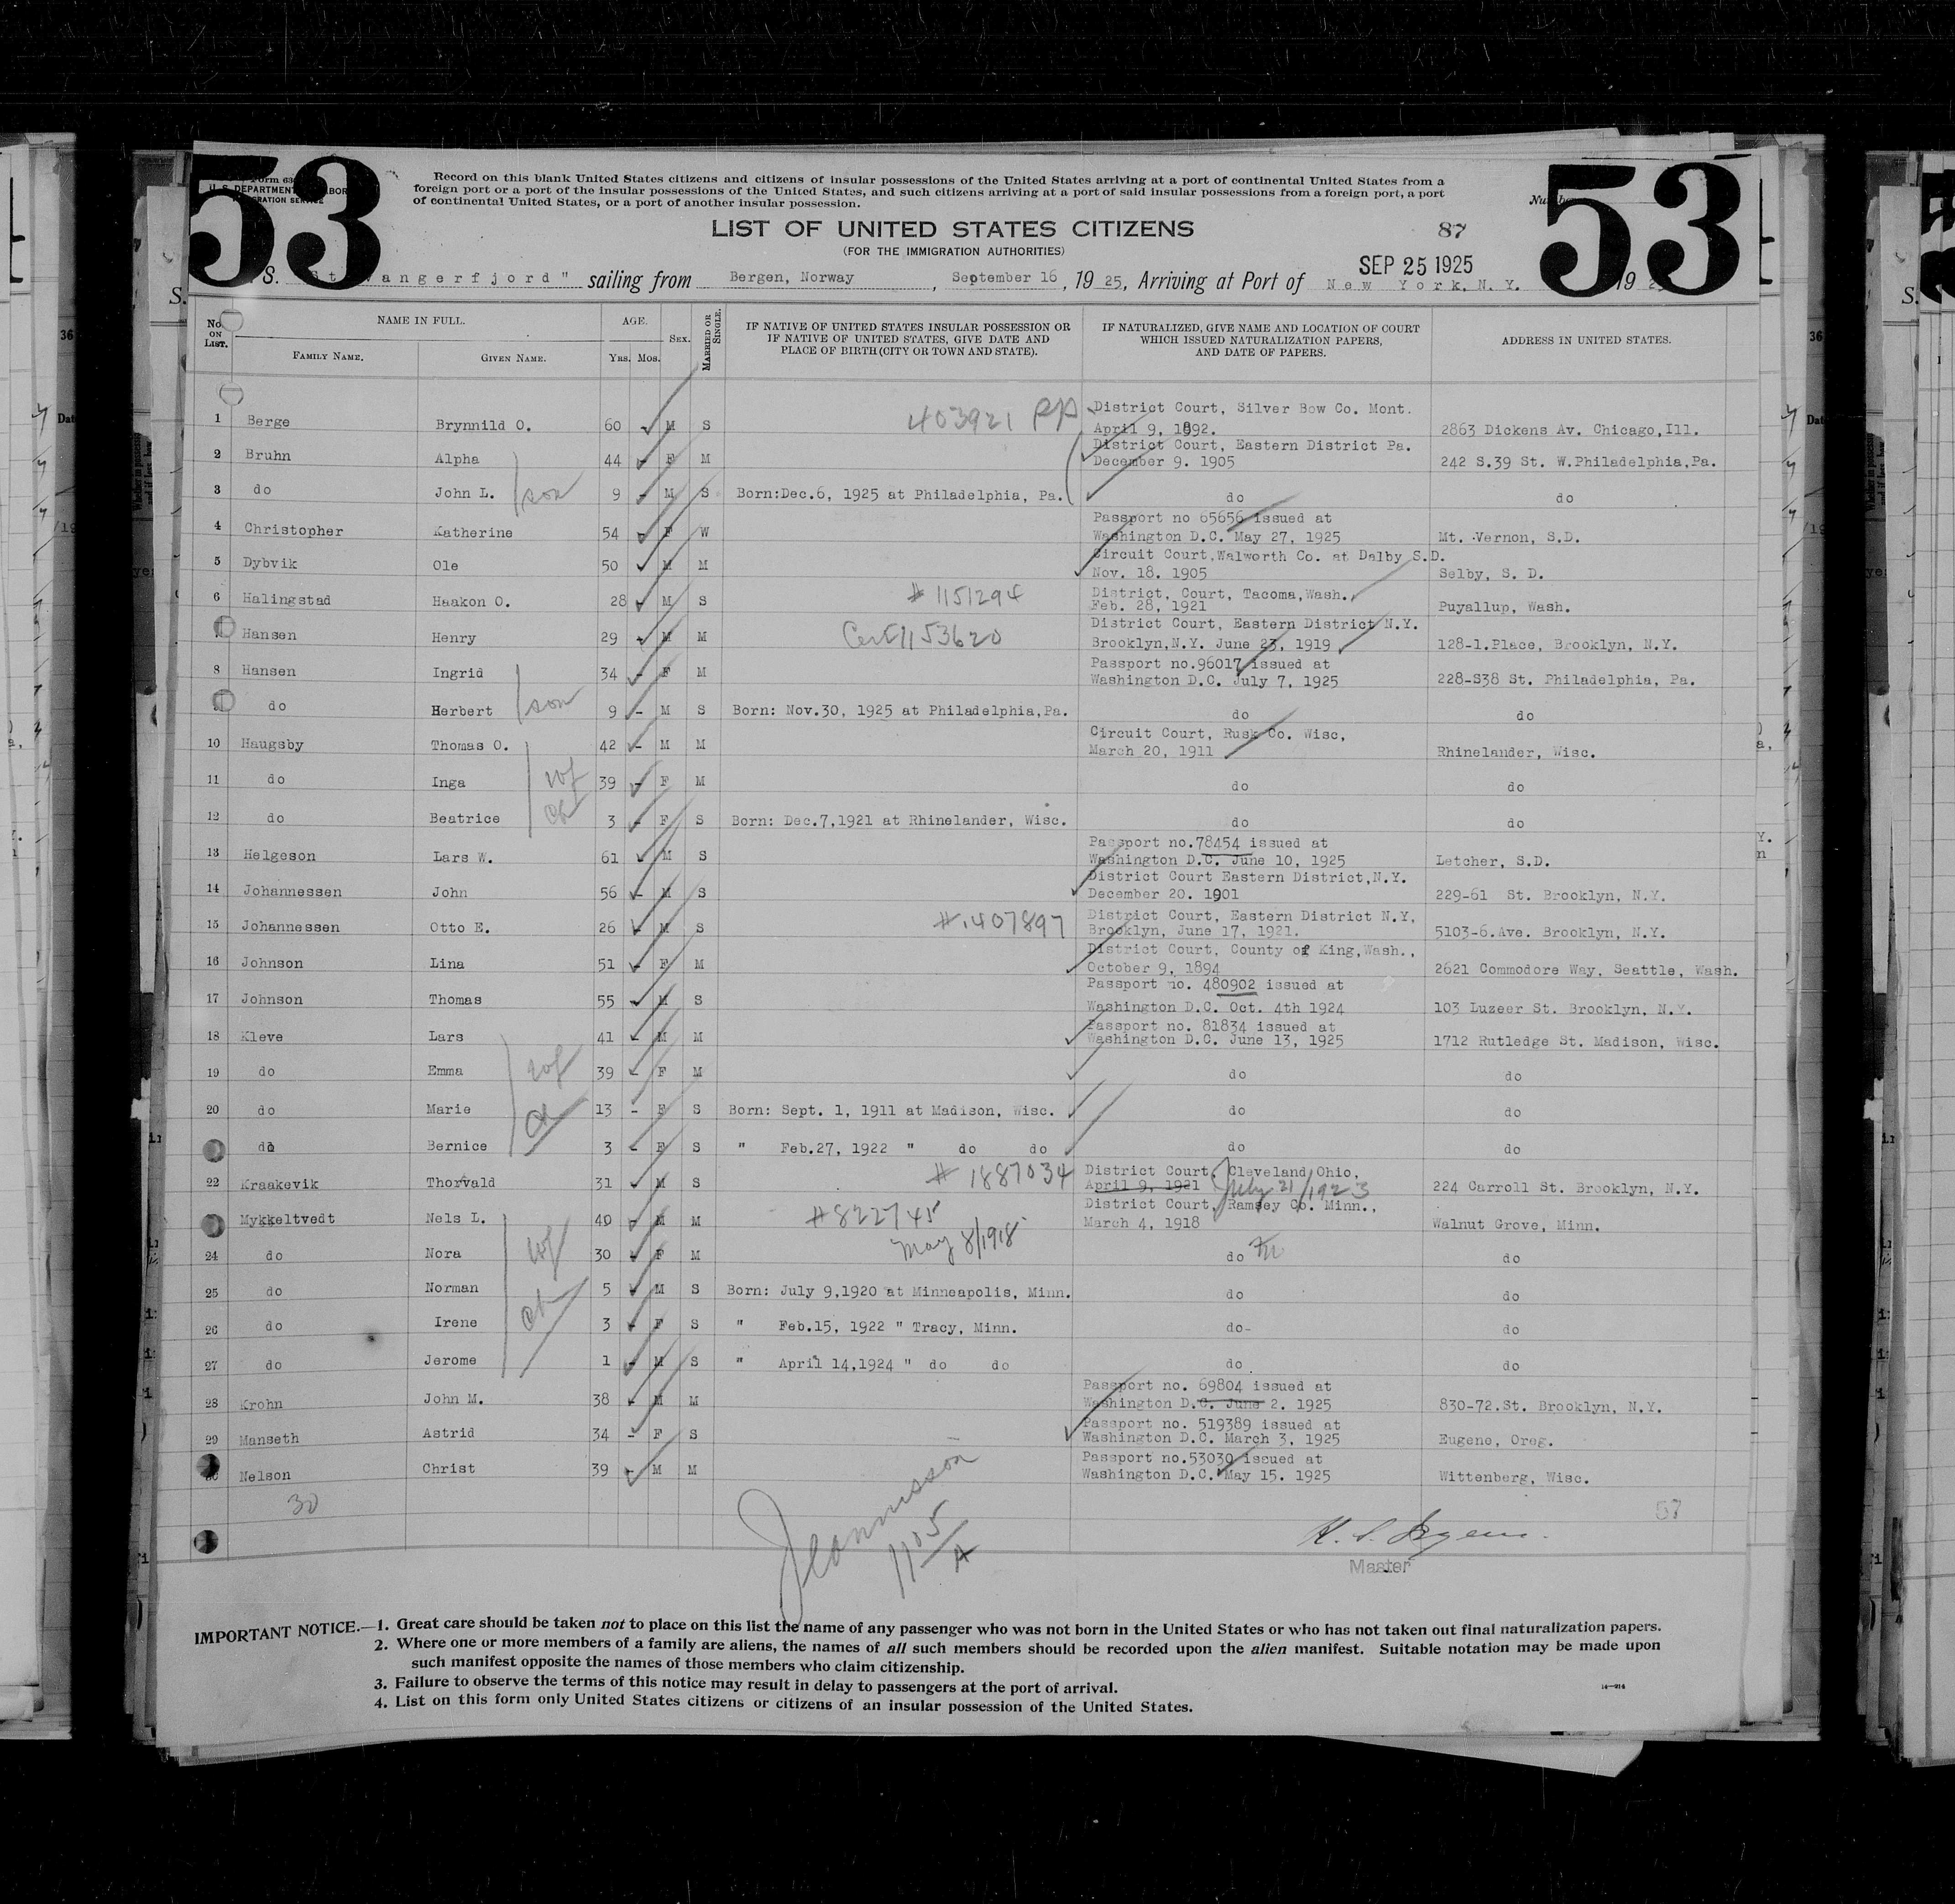 53
53
Form 63
U. S. DEPARTMENT LABOR
IGRATION SERVICE
Record on this blank United States citizens and citizens of insular possessions of the United States arriving at a port of continental United States from a
foreign port or a port of the insular possessions of the United States, and such citizens arriving at a port of said insular possessions from a foreign port, a port
of continental United States, or a port of another insular possession.
LIST OF UNITED STATES CITIZENS
87
(FOR THE IMMIGRATION AUTHORITIES)
SEP 25 1925
S. St vangerfjord" sailing from Bergen, Norway, September 16, 1925, Arriving at Port of New York, N.Y. 19
No. ON LIST.
NAME IN FULL.
FAMILY NAME. GIVEN NAME.
AGE.
Yrs. Mos.
SEX.
MARRIED OR SINGLE.
IF NATIVE OF UNITED STATES INSULAR POSSESSION OR
IF NATIVE OF UNITED STATES, GIVE DATE AND
PLACE OF BIRTH (CITY OR TOWN AND STATE).
IF NATURALIZED, GIVE NAME AND LOCATION OF COURT
WHICH ISSUED NATURALIZATION PAPERS,
AND DATE OF PAPERS.
ADDRESS IN UNITED STATES.
District Court, Silver Bow Co. Mont.
1 Berge Brynnild O. 60 M S 403921 PP April 9, 1892. 2863 Dickens Av. Chicago,Ill.
District Court, Eastern District Pa.
2 Bruhn Alpha 44 F M December 9. 1905 242 S.39 St. W.Philadelphia,Pa.
3 do John L. son 9 - M S Born:Dec.6, 1925 at Philadelphia, Pa. do do
Passport no 65656 issued at
4 Christopher Katherine 54 F W Washington D.C. May 27, 1925 Mt. Vernon, S.D.
Circuit Court,Walworth Co. at Dalby S.D.
5 Dybvik Ole 50 M M Nov. 18. 1905 Selby, S. D.
District, Court, Tacoma,Wash.
6 Halingstad Haakon O. 28 M S # 1151294 Feb. 28, 1921 Puyallup, Wash.
District Court, Eastern District N.Y.
Hansen Henry 29 M M Cert 1153620 Brooklyn,N.Y. June 23, 1919 128-1.Place, Brooklyn, N.Y.
Passport no.96017 issued at
8 Hansen Ingrid 34 - F M Washington D.C. July 7, 1925 228-S38 St. Philadelphia, Pa.
do Herbert son 9 - M S Born: Nov.30, 1925 at Philadelphia,Pa. do do
Circuit Court, Rusk Co. Wisc,
10 Haugsby Thomas O. 42 - M M March 20, 1911 Rhinelander, Wisc.
11 do Inga wf 39 - F M do do
12 do Beatrice ch 3 - F S Born: Dec.7,1921 at Rhinelander, Wisc. do do
Passport no.78454 issued at
13 Helgeson Lars W. 61 M S Washington D.C. June 10, 1925 Letcher, S.D.
District Court Eastern District,N.Y.
14 Johannessen John 56 - M S December 20. 1901 229-61 St. Brooklyn, N.Y.
District Court, Eastern District N.Y,
15 Johannessen Otto E. 26 M S #1407897 Brooklyn, June 17, 1921. 5103-6.Ave. Brooklyn, N.Y.
District Court, County of King,Wash.,
16 Johnson Lina 51 - F M October 9, 1894 2621 Commodore Way, Seattle, Wash.
Passport no. 480902 issued at
17 Johnson Thomas 55 M S Washington D.C. Oct. 4th 1924 103 Luzeer St. Brooklyn, N.Y.
Passport no. 81834 issued at
18 Kleve Lars 41 - M M Washington D.C. June 13, 1925 1712 Rutledge St. Madison, Wisc.
19 do Emma wf 39 - F M do do
20 do Marie ch 13 - F S Born: Sept. 1, 1911 at Madison, Wisc. do do
do Bernice 3 - F S " Feb.27, 1922 " do do do do
District Court, Cleveland Ohio,
22 Kraakevik Thorvald 31 M S # 1887034 April 9, 1921 July 21/1923 224 Carroll St. Brooklyn, N.Y.
District Court, Ramsey Co. Minn.,
Mykkeltvedt Nels L. 40 - M M #822745 March 4, 1918 Walnut Grove, Minn.
24 do Nora wf 30 - F M May 8/1918 do do
25 do Norman 5 M S Born: July 9,1920 at Minneapolis, Minn. do do
26 do Irene ch 3 - F S " Feb.15, 1922 " Tracy, Minn. do- do
27 do Jerome 1 - M S " April 14,1924 " do do do do
Passport no. 69804 issued at
28 Krohn John M. 38 - M M Washington D.C. June 2. 1925 830-72.St. Brooklyn, N.Y.
Passport no. 519389 issued at
29 Manseth Astrid 34 - F S Washington D.C. March 3, 1925 Eugene, Oreg.
Passport no.53030 issued at
Nelson Christ 39 - M M Washington D.C. May 15. 1925 Wittenberg, Wisc.
30
Master
IMPORTANT NOTICE.—1. Great care should be taken not to place on this list the name of any passenger who was not born in the United States or who has not taken out final naturalization papers.
2. Where one or more members of a family are aliens, the names of all such members should be recorded upon the alien manifest. Suitable notation may be made upon
such manifest opposite the names of those members who claim citizenship.
3. Failure to observe the terms of this notice may result in delay to passengers at the port of arrival.
4. List on this form only United States citizens or citizens of an insular possession of the United States.
14—914